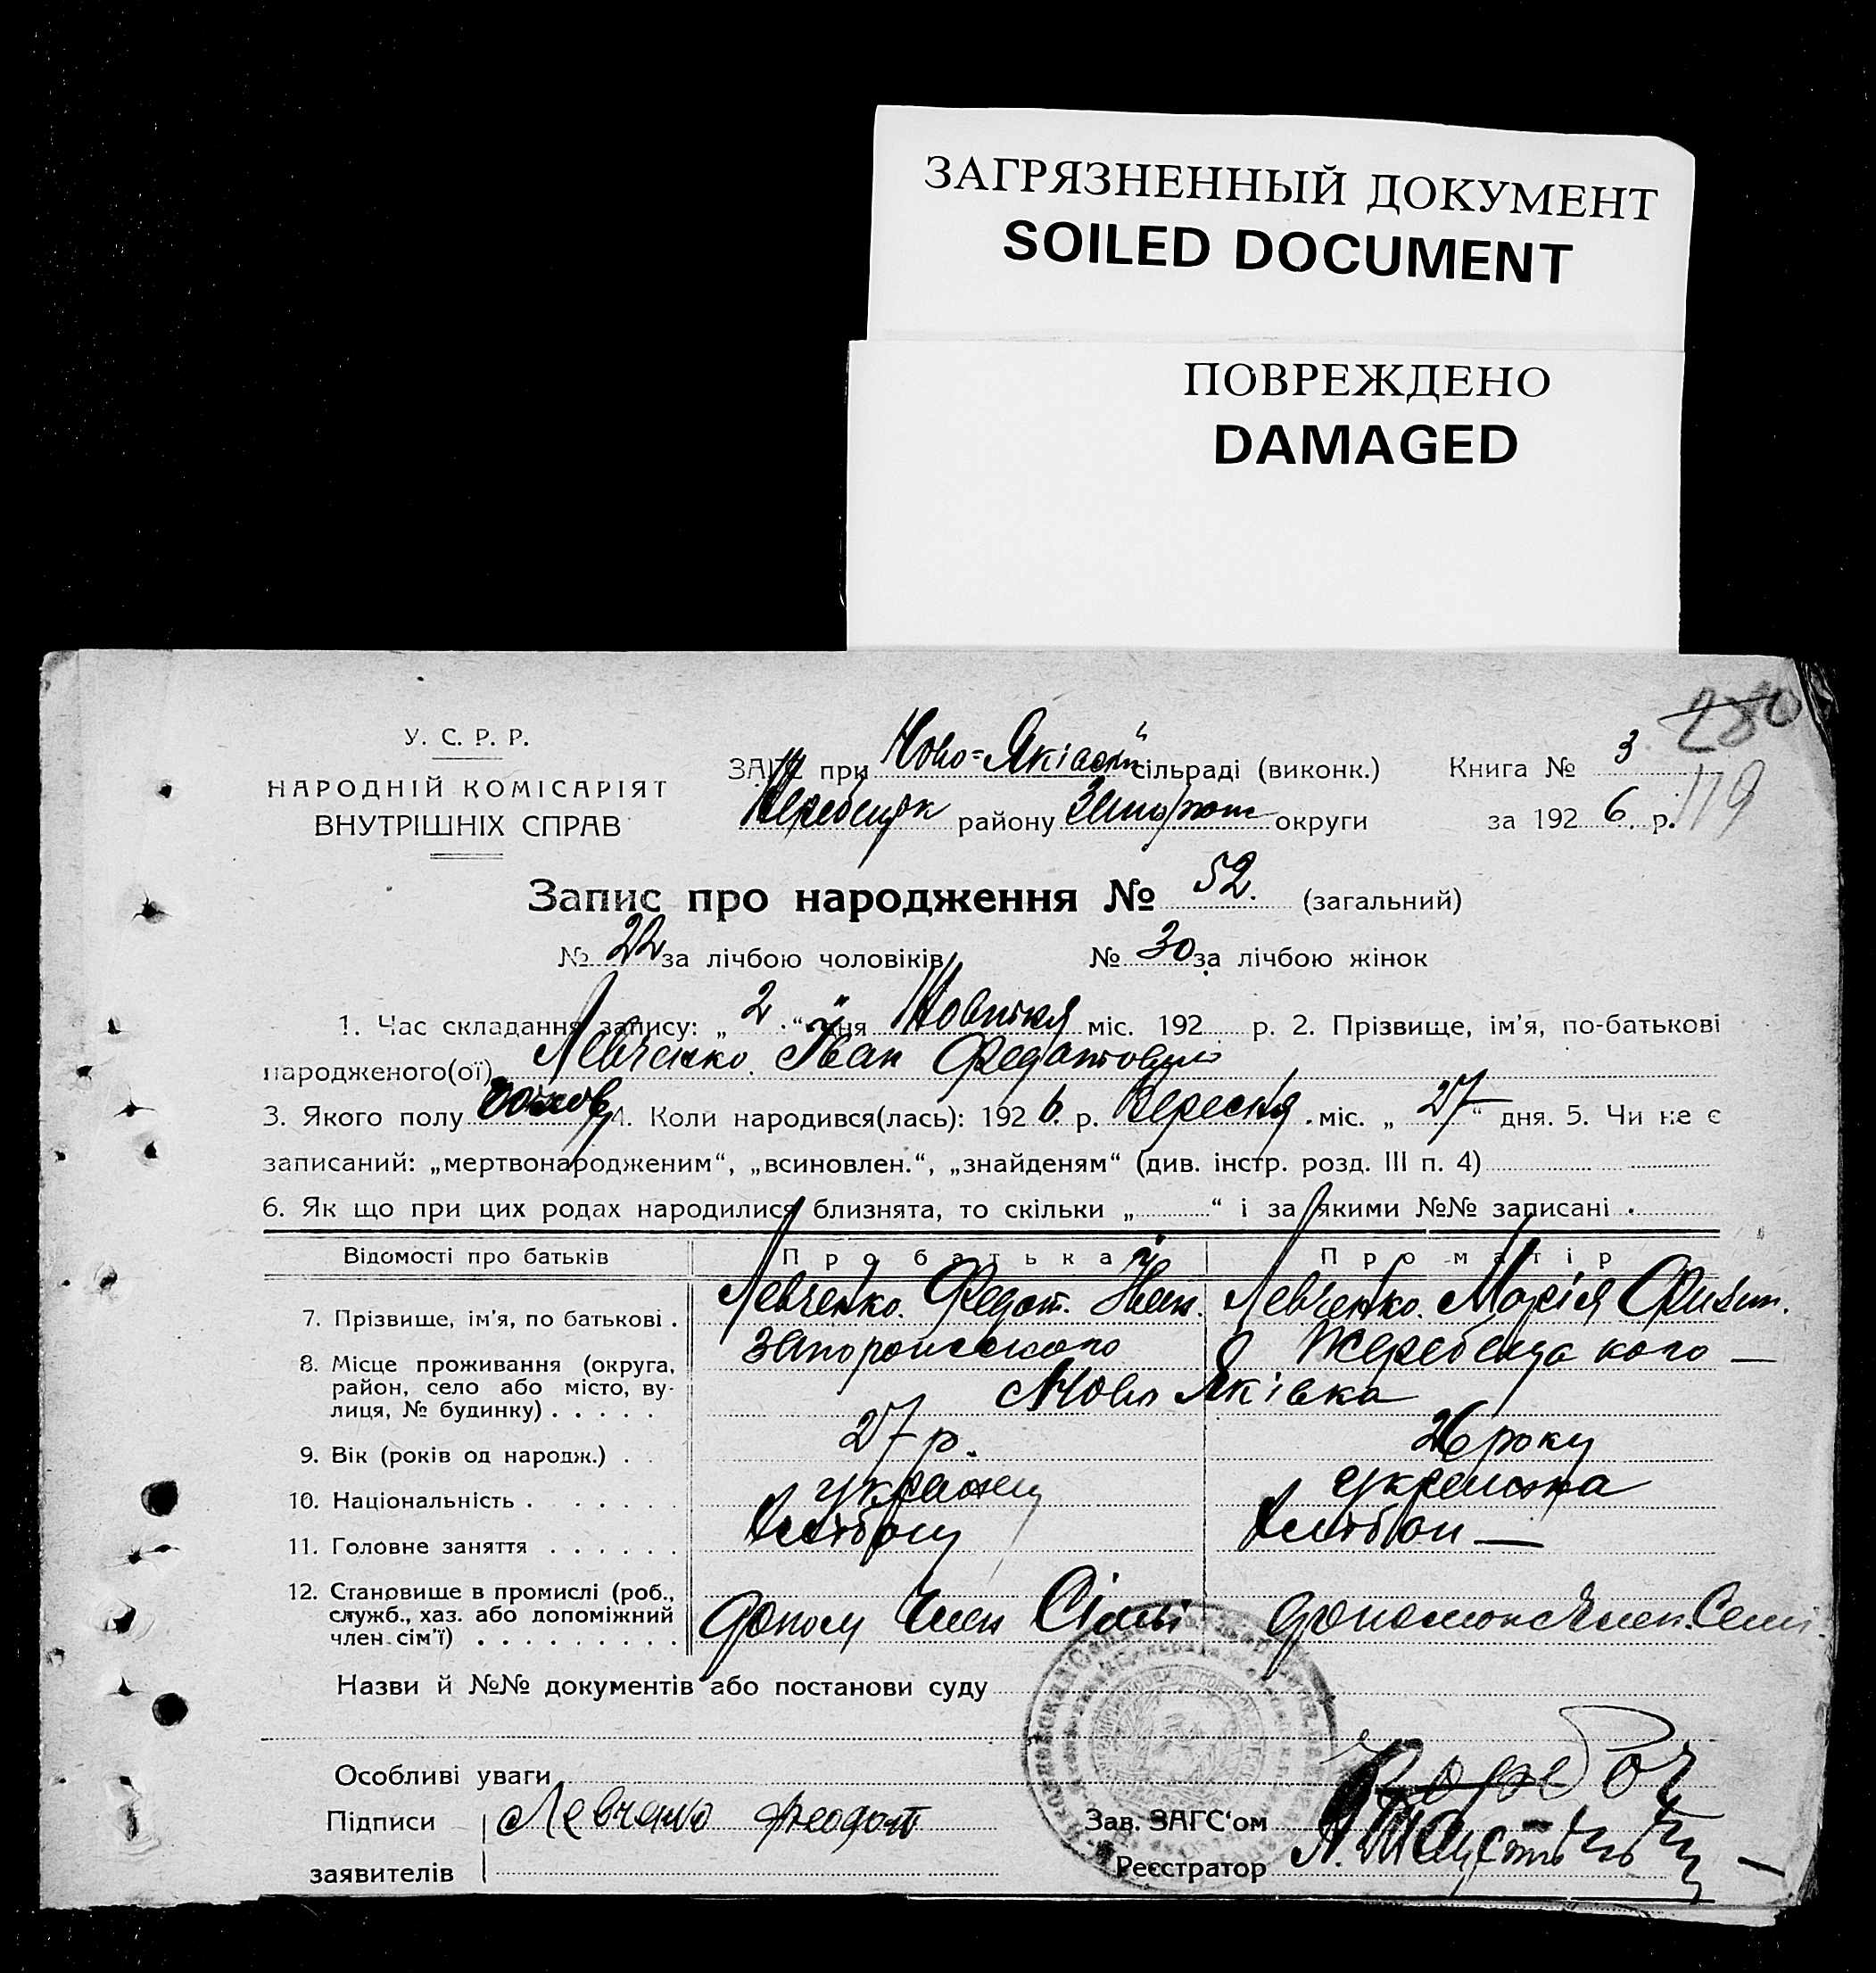 ЗАГРЯЗНЕННЫЙ ДОКУМЕНТ
SOILED DOCUMENT
ПОВРЕЖДЕНО
DAMAGED
280
119
У. С. Р. Р.
НАРОДНІЙ КОМІСАРІЯТ
ВНУТРІШНІХ СПРАВ
ЗАГС при Ново-Яківськ сільраді (виконк.) Книга № 3
району округи за 192 6 р.
Запис про народження № 52. (загальний)
№ 22 за лічбою чоловіків № 30 за лічбою жінок
1. Час складання запису: „ 2 “ дня Новитня міс. 192 р. 2. Прізвище, ім'я, по-батькові
народженого(ої) Левченко Іван Федотович
3. Якого полу 4. Коли народився(лась): 192 6 р. Вересня міс. „ 27 “ дня. 5. Чи не є
записаний: „мертвонародженим“, „всиновлен.“, „знайденям“ (див. інстр. розд. III п. 4)
6. Як що при цих родах народилися близнята, то скільки „ “ і за якими №№ записані
Відомості про батьків Про батька Про матір
7. Прізвище, ім'я, по батькові . Левченко. Федот. Іван. Левченко. Марія
8. Місце проживання (округа, Запорожского Жеребецкого —
район, село або місто, ву-
лиця, № будинку) . . . . . Ново Яківка
9. Вік (років од народж.) . . 27 р. 26 року
10. Національність . . . . . . . украінец украінка
11. Головне заняття . . . . . . хлібороб хлібороб —
12. Становище в промислі (роб.,
служб., хаз. або допоміжний допом член Сімї допомож член. Семі.
член сім'ї) . . . . . . . . .
Назви й №№ документів або постанови суду
Особливі уваги
Підписи Левченко Феодот Зав. ЗАГС'ом
заявителів Реєстратор